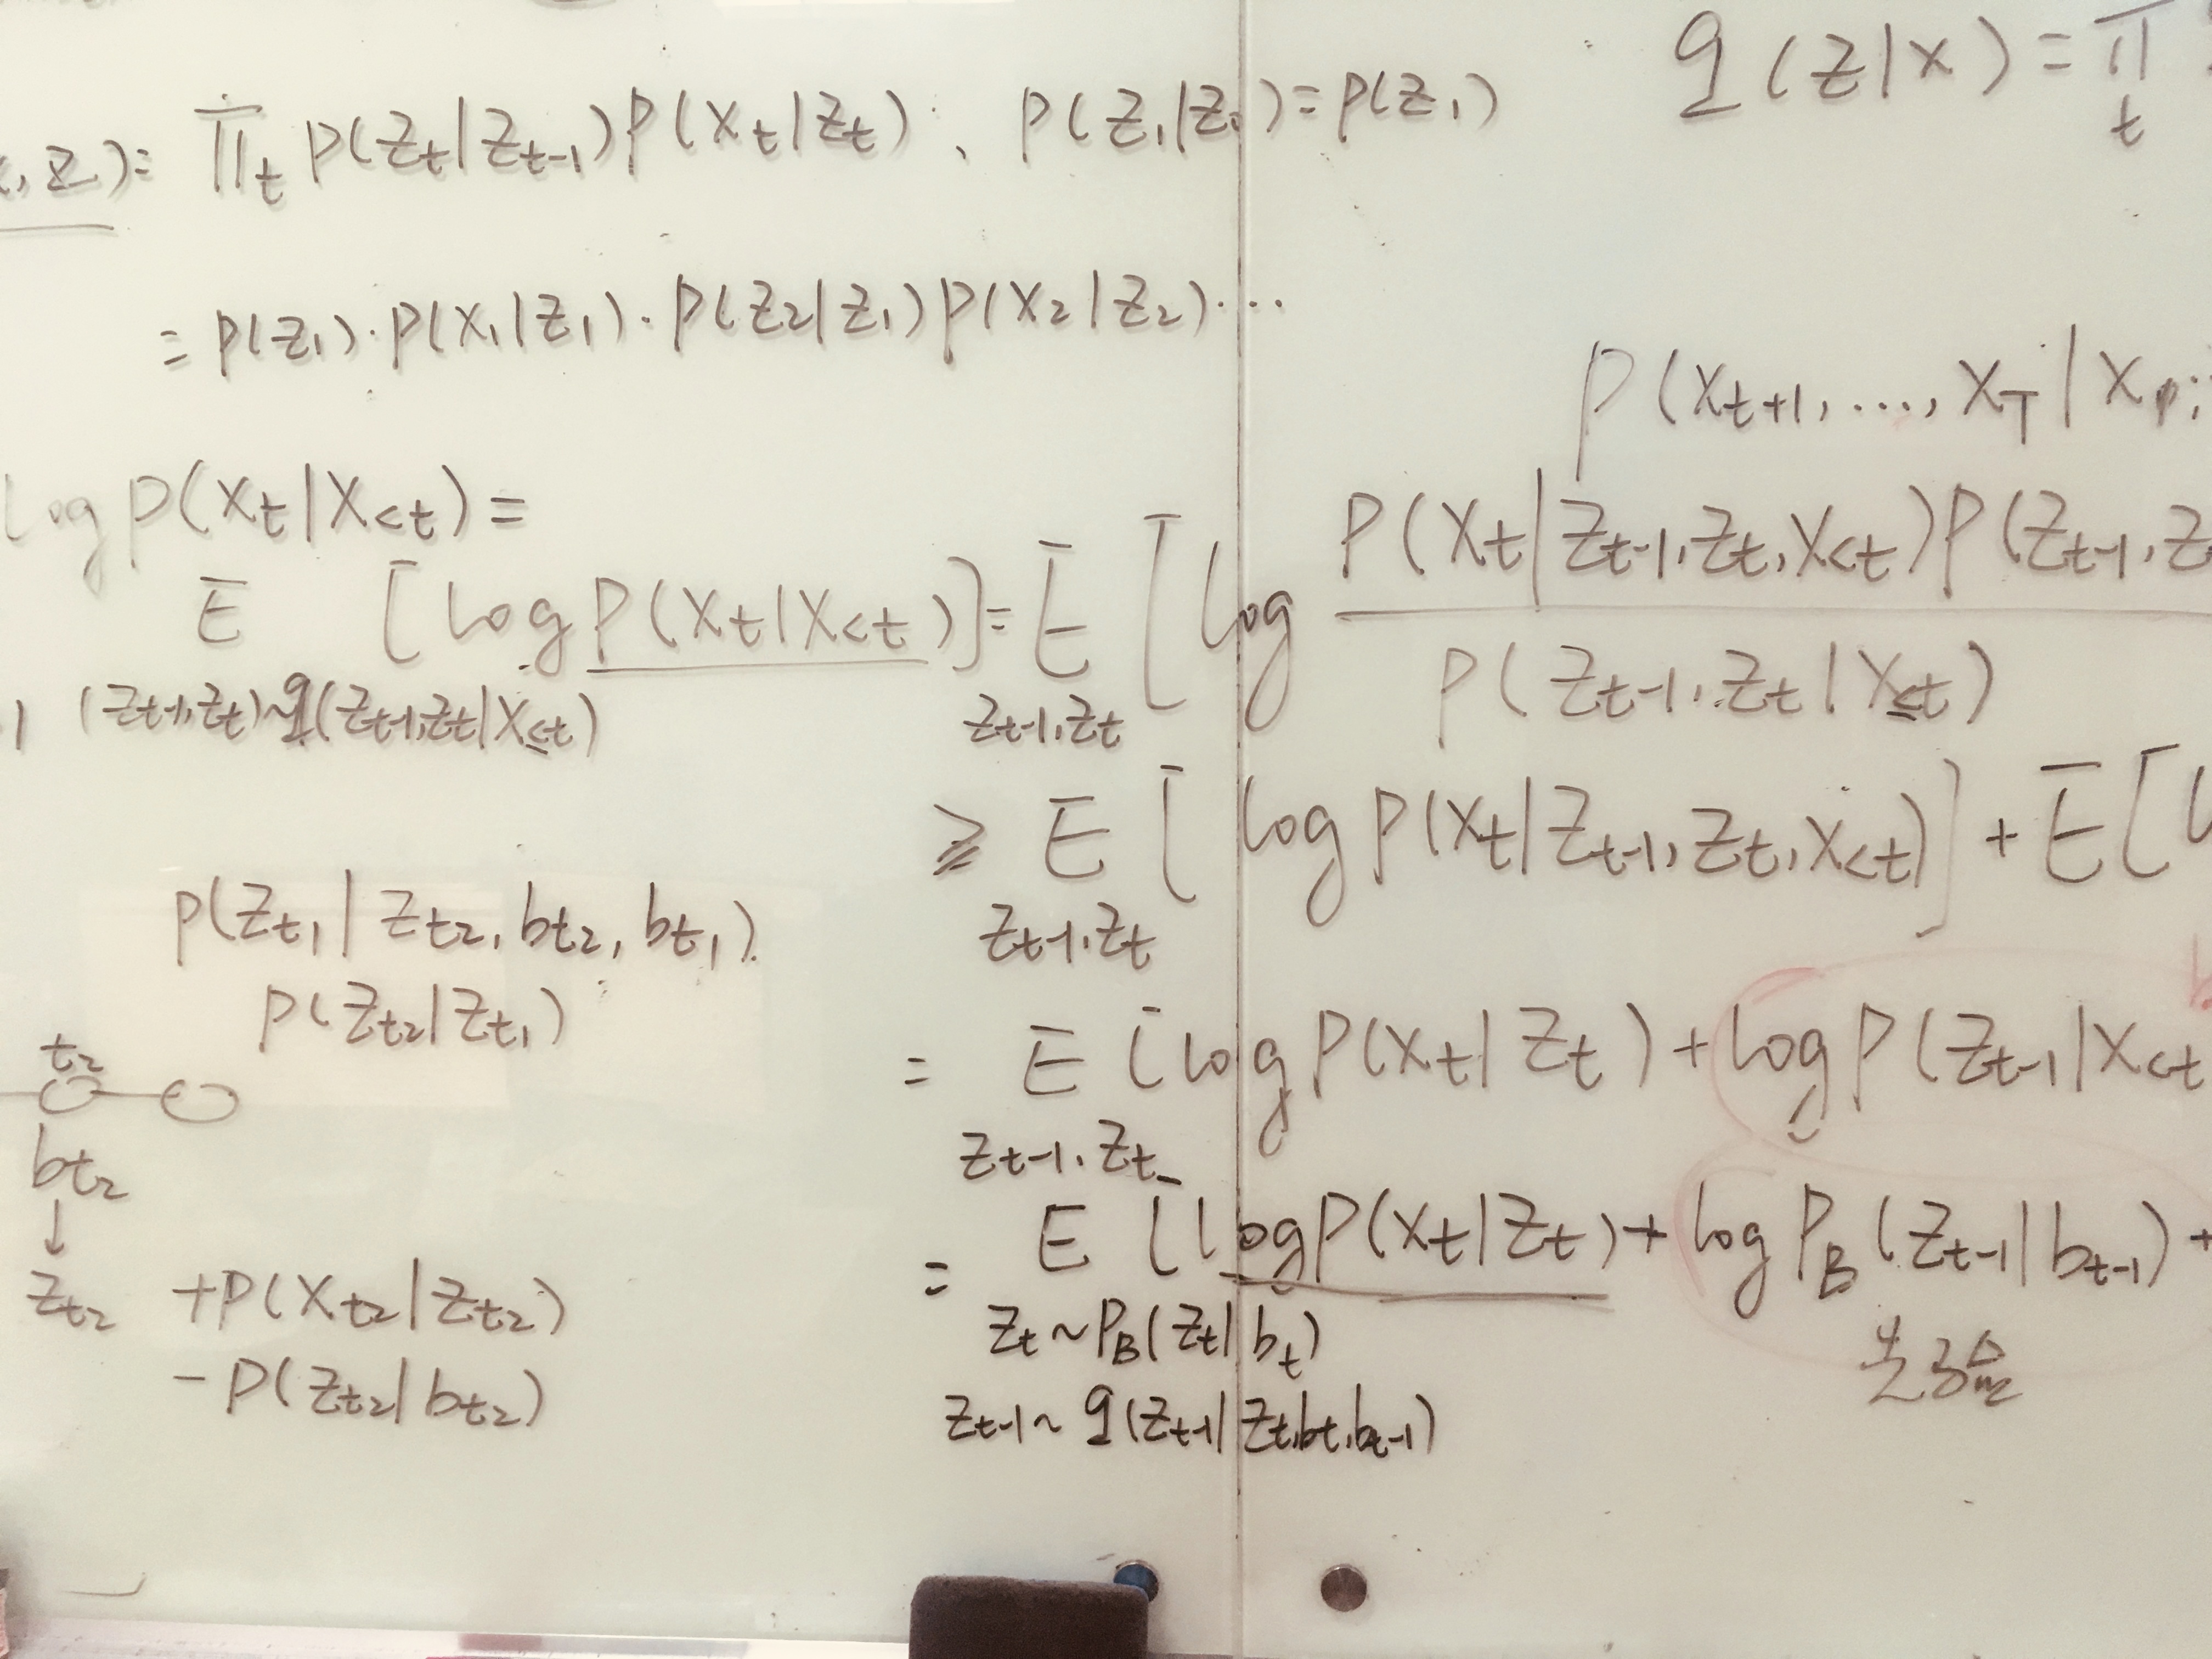 , z) = Π_t p(z_t|z_{t-1}) p(x_t|z_t), p(z_1|z_0) = p(z_1)
= p(z_1)·p(x_1|z_1)·p(z_2|z_1) p(x_2|z_2)···
log p(x_t|x_{<t}) =
E [log p(x_t|x_{<t})] = E [log
(z_{t-1}, z_t) ~ q(z_{t-1}, z_t|x_{≤t})
z_{t-1}, z_t
q(z|x) = Π
t
p(x_{t+1}, ..., x_T|x
p(x_t|z_{t-1}, z_t, x_{<t}) p(z_{t-1}, z
p(z_{t-1}, z_t|x_{≤t})
≥ E [log p(x_t|z_{t-1}, z_t, x_{<t})] + E [
z_{t-1}, z_t
= E [log p(x_t|z_t) + log p(z_{t-1}|x_{<t}
z_{t-1}, z_t
= E [log p(x_t|z_t) + log p_B(z_{t-1}|b_{t-1}) +
z_t ~ p_B(z_t|b_t)
z_{t-1} ~ q(z_{t-1}|z_t, b_t, b_{t-1})
先验
p(z_{t1}|z_{t2}, b_{t2}, b_{t1})
p(z_{t2}|z_{t1})
t_2
b_{t2}
↓
z_{t2} + p(x_{t2}|z_{t2})
- p(z_{t2}|b_{t2})